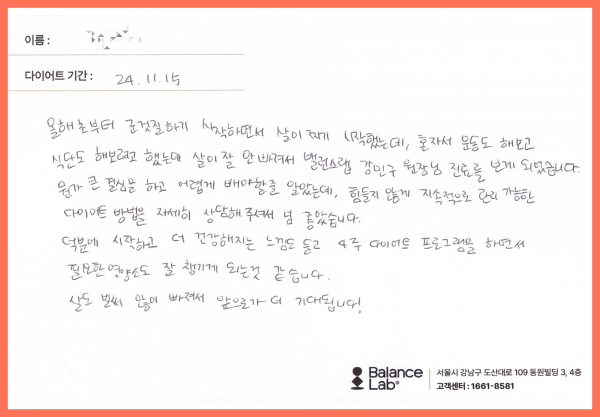 이름 :
다이어트 기간 : 24.11.15
올해 초부터 군것질하기 시작하면서 살이 찌기 시작했는데, 혼자서 운동도 해보고
식단도 해보려고 했는데 살이 잘 안 빠져서 밸런스랩 강민구 원장님 진료를 보게 되었습니다.
뭔가 큰 결심을 하고 어렵게 빼야할줄 알았는데, 힘들지 않게 지속적으로 관리 가능한
다이어트 방법을 자세히 상담해 주셔서 넘 좋았습니다.
덕분에 시작하고 더 건강해지는 느낌도 들고 4주 다이어트 프로그램을 하면서
필요한 영양소도 잘 챙기게 되는것 같습니다.
살도 벌써 많이 빠져서 앞으로가 더 기대됩니다!
Balance Lab®
서울시 강남구 도산대로 109 동원빌딩 3, 4층
고객센터 : 1661-8581